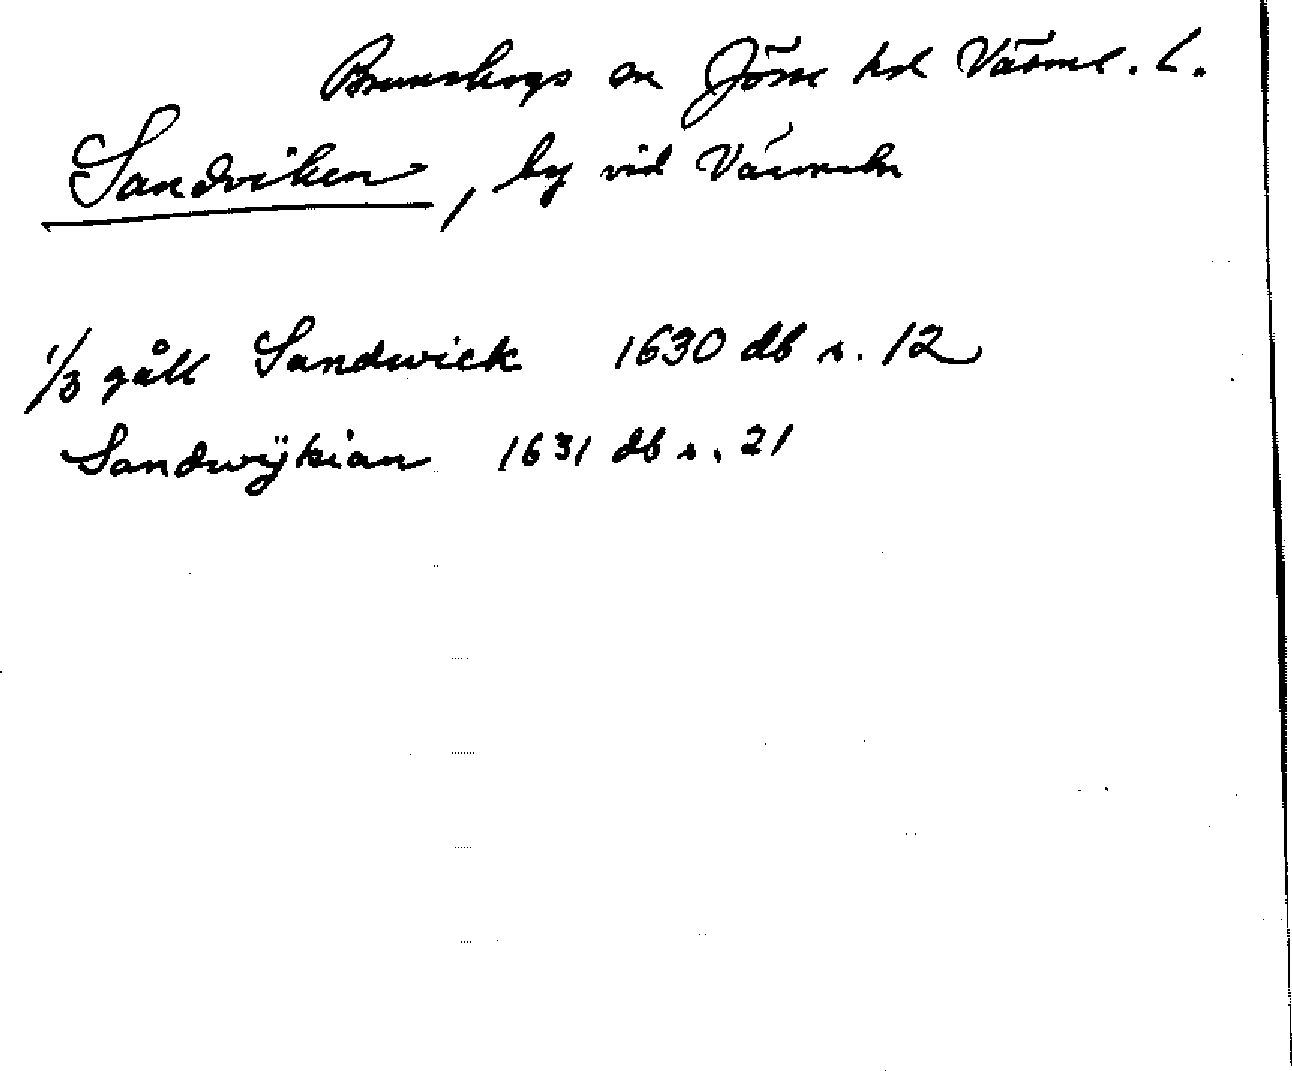 Brunskogs sn Jösse hd Värml. l.
Sandviken, by vid Värmeln
1/3 gåll Sandwick 1630 db s. 12
Sandwÿkian 1631 db s. 21